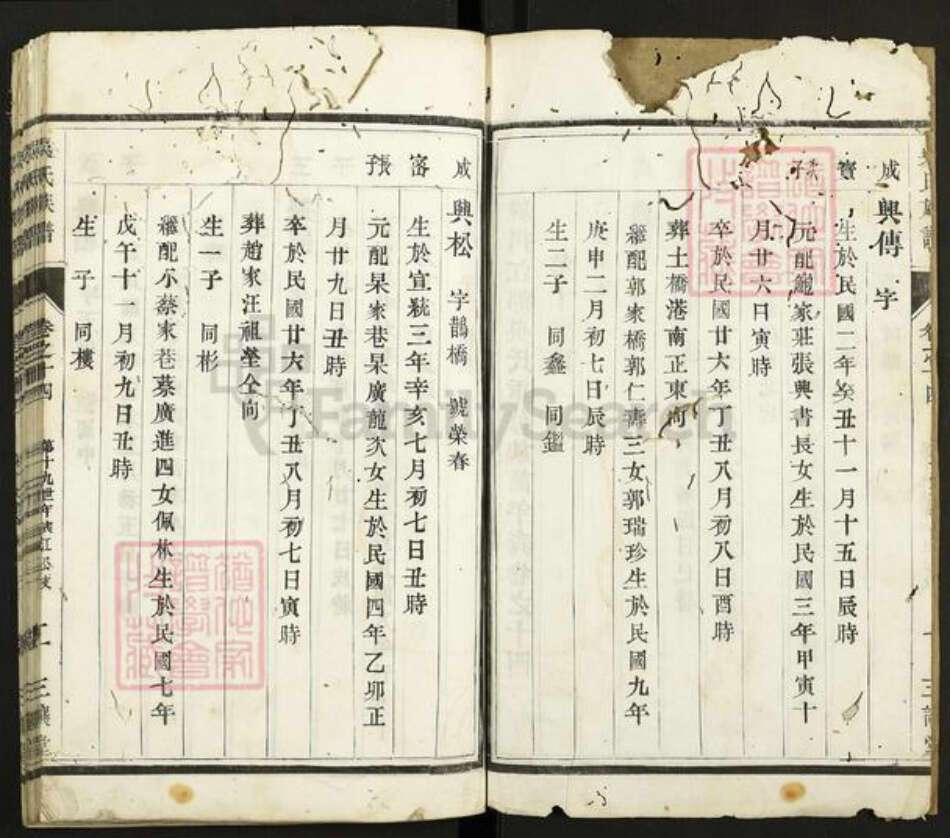 成 興傳 字
寶 生於民國二年癸丑十一月十五日辰時
子 元配鮑家莊張興書長女生於民國三年甲寅十
月廿六日寅時
卒於民國廿六年丁丑八月初八日酉時
葬土橋港南正東向
繼配郭家橋郭仁壽三女郭瑞珍生於民國九年
庚申二月初七日辰時
生二子 同鑫 同鑑
成 興松 字鵲橋 號榮春
富 生於宣統三年辛亥七月初七日丑時
張 元配杲家巷杲廣龍次女生於民國四年乙卯正
月廿九日丑時
卒於民國廿六年丁丑八月初七日寅時
葬趙家汪祖塋仝向
生一子 同彬
繼配小蔡家巷蔡廣進四女佩林生於民國七年
戊午十一月初九日丑時
生 子 同樓
氏族譜
卷之十四
第十九世
三讓堂
FamilySearch